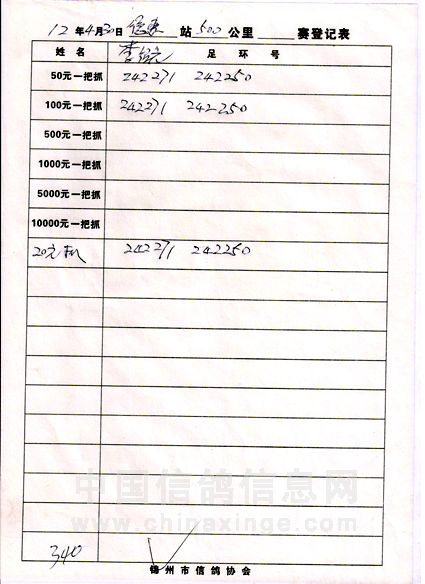 12 年 4 月 30 日 站 500 公里 赛登记表
姓 名 李 足 环 号
50元一把抓 242271 242250
100元一把抓 242271 242250
500元一把抓
1000元一把抓
5000元一把抓
10000元一把抓
20元 242271 242250
中国信鸽信息网
www.chinaxinge.com
340
锦州市信鸽协会